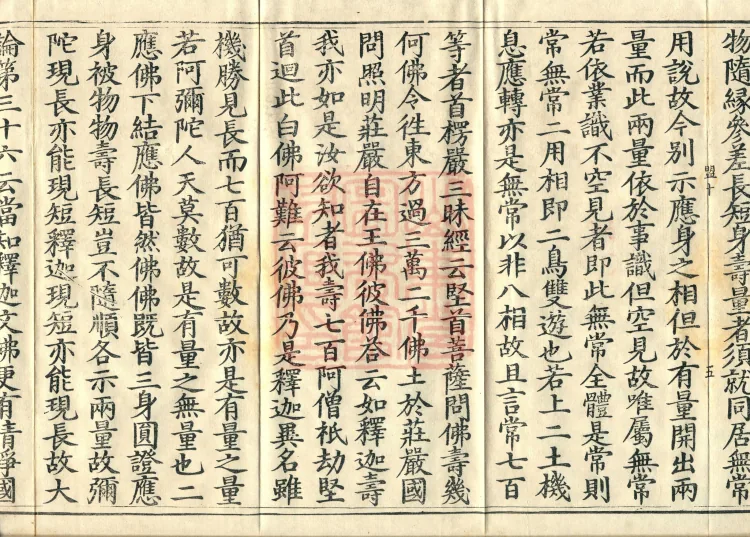 物隨緣參差長短身壽量者須就同居無常
用說故今別示應身之相但於有量開出兩
量而此兩量依於事識但空見故唯屬無常
若依業識不空見者即此無常全體是常則
常無常二用相即二鳥雙遊也若上二土機
息應轉亦是無常以非八相故且言常七百
等者首楞嚴三昧經云堅首菩薩問佛壽幾
何佛令往東方過三萬二千佛土於莊嚴國
問照明莊嚴自在王佛彼佛荅云如釋迦壽
我亦如是汝欲知者我壽七百阿僧祇劫堅
首迴此白佛阿難云彼佛乃是釋迦異名雖
機勝見長而七百猶可數故亦是有量之量
若阿彌陀人天莫數故是有量之無量也二
應佛下結應佛皆然佛佛既皆三身圓證應
身被物物壽長短豈不隨順各示兩量故彌
陀現長亦能現短釋迦現短亦能現長故大
論第三十六云當知釋迦文佛更有清淨國
盟十
五